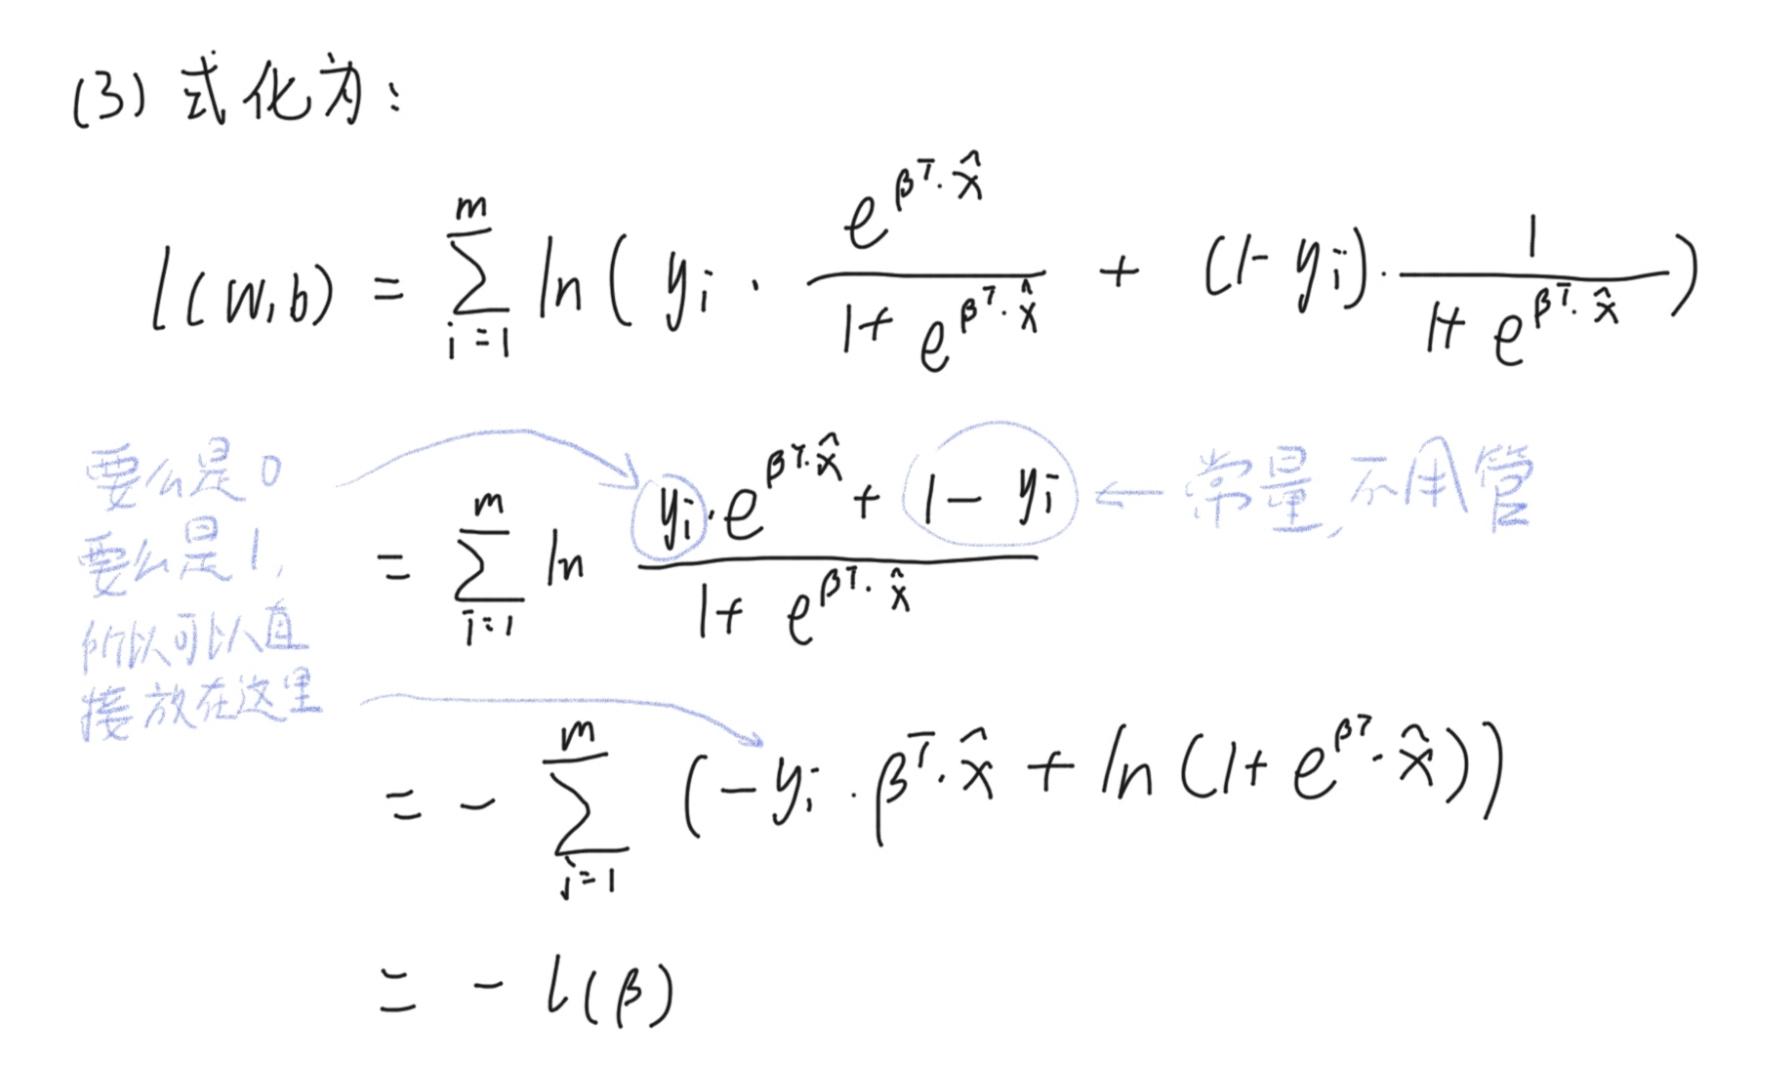 (3) 式化为:
l(w,b) = \sum_{i=1}^{m} ln( y_i · \frac{e^{β^T·\hat{x}}}{1+e^{β^T·\hat{x}}} + (1-y_i)·\frac{1}{1+e^{β^T·\hat{x}}} )
要么是0
要么是1,
所以可以直
接放在这里
= \sum_{i=1}^{m} ln \frac{y_i·e^{β^T·\hat{x}} + 1-y_i}{1+e^{β^T·\hat{x}}}
← 常量,不用管
= - \sum_{i=1}^{m} (-y_i · β^T·\hat{x} + ln(1+e^{β^T·\hat{x}}))
= - l(β)